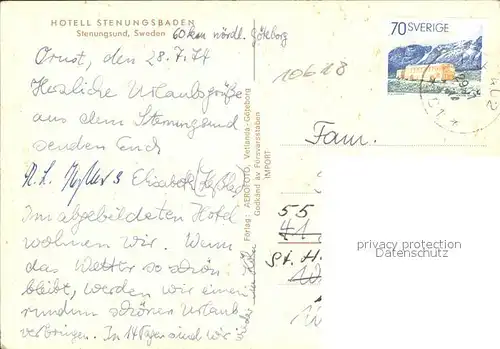 HOTELL STENUNGSBADEN
Stenungsund, Sweden
60 km nördl. Göteborg
Orust, den 28.7.74
Herzliche Urlaubsgrüße
aus dem Stenungsund
senden Euch
Elisabeth
Im abgebildeten Hotel
wohnen wir. Wenn
das Wetter so schön
bleibt, werden wir einen
rundum schönen Urlaub
verbringen. In 14 Tagen sind wir
wieder in Köln
Förlag: AEROFOTO, Vetlanda-Göteborg
Godkänd av Försvarsstaben
IMPORT
70 SVERIGE
10618
Fam.
55
41
St. H
protection watermark
Datenschutz